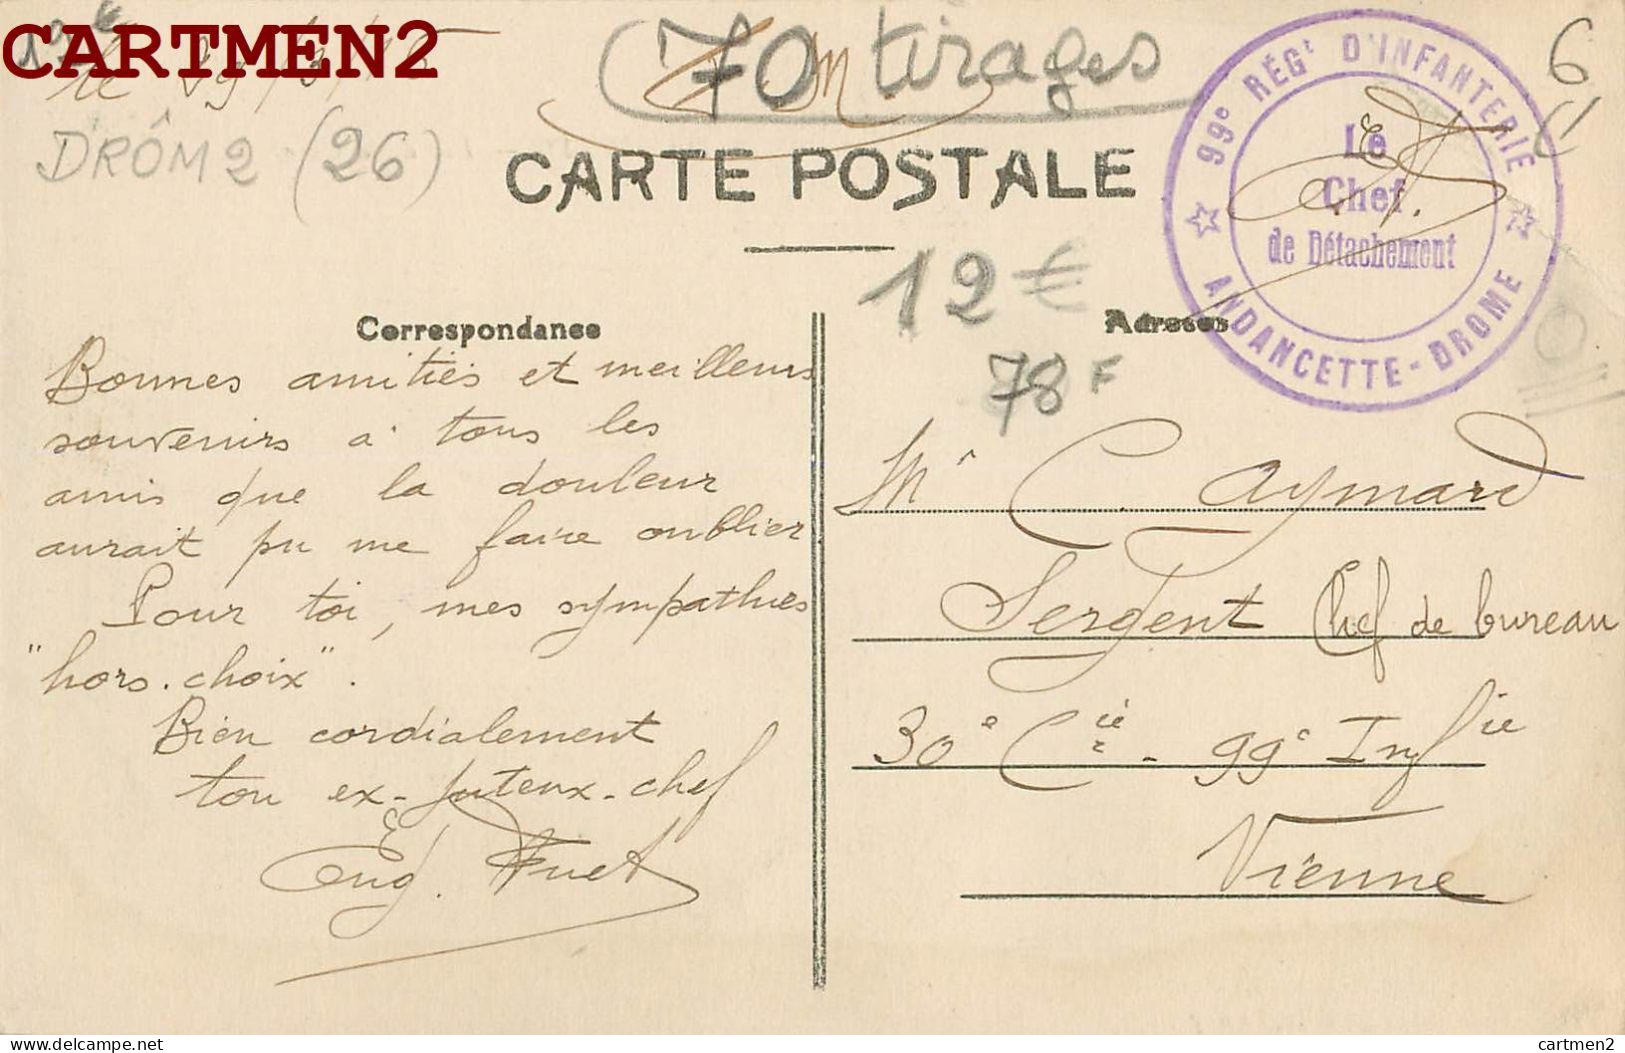 CARTMEN2
70 tirages
6
DRÔM2 (26)
CARTE POSTALE
99e RÉGt D'INFANTERIE
Le
Chef
de Détachement
ANDANCETTE - DROME
12 €
78 F
Correspondance
Adresse
Bonnes amitiés et meilleurs
souvenirs à tous les
amis que la douleur
aurait pu me faire oublier
Pour toi, mes sympathies
"hors-choix".
Bien cordialement
ton ex-juteux-chef
Eug. Fuet
Mr C. Aymard
Sergent Chef de bureau
30e Cie - 99e Infie
Vienne
delcampe.net
cartmen2